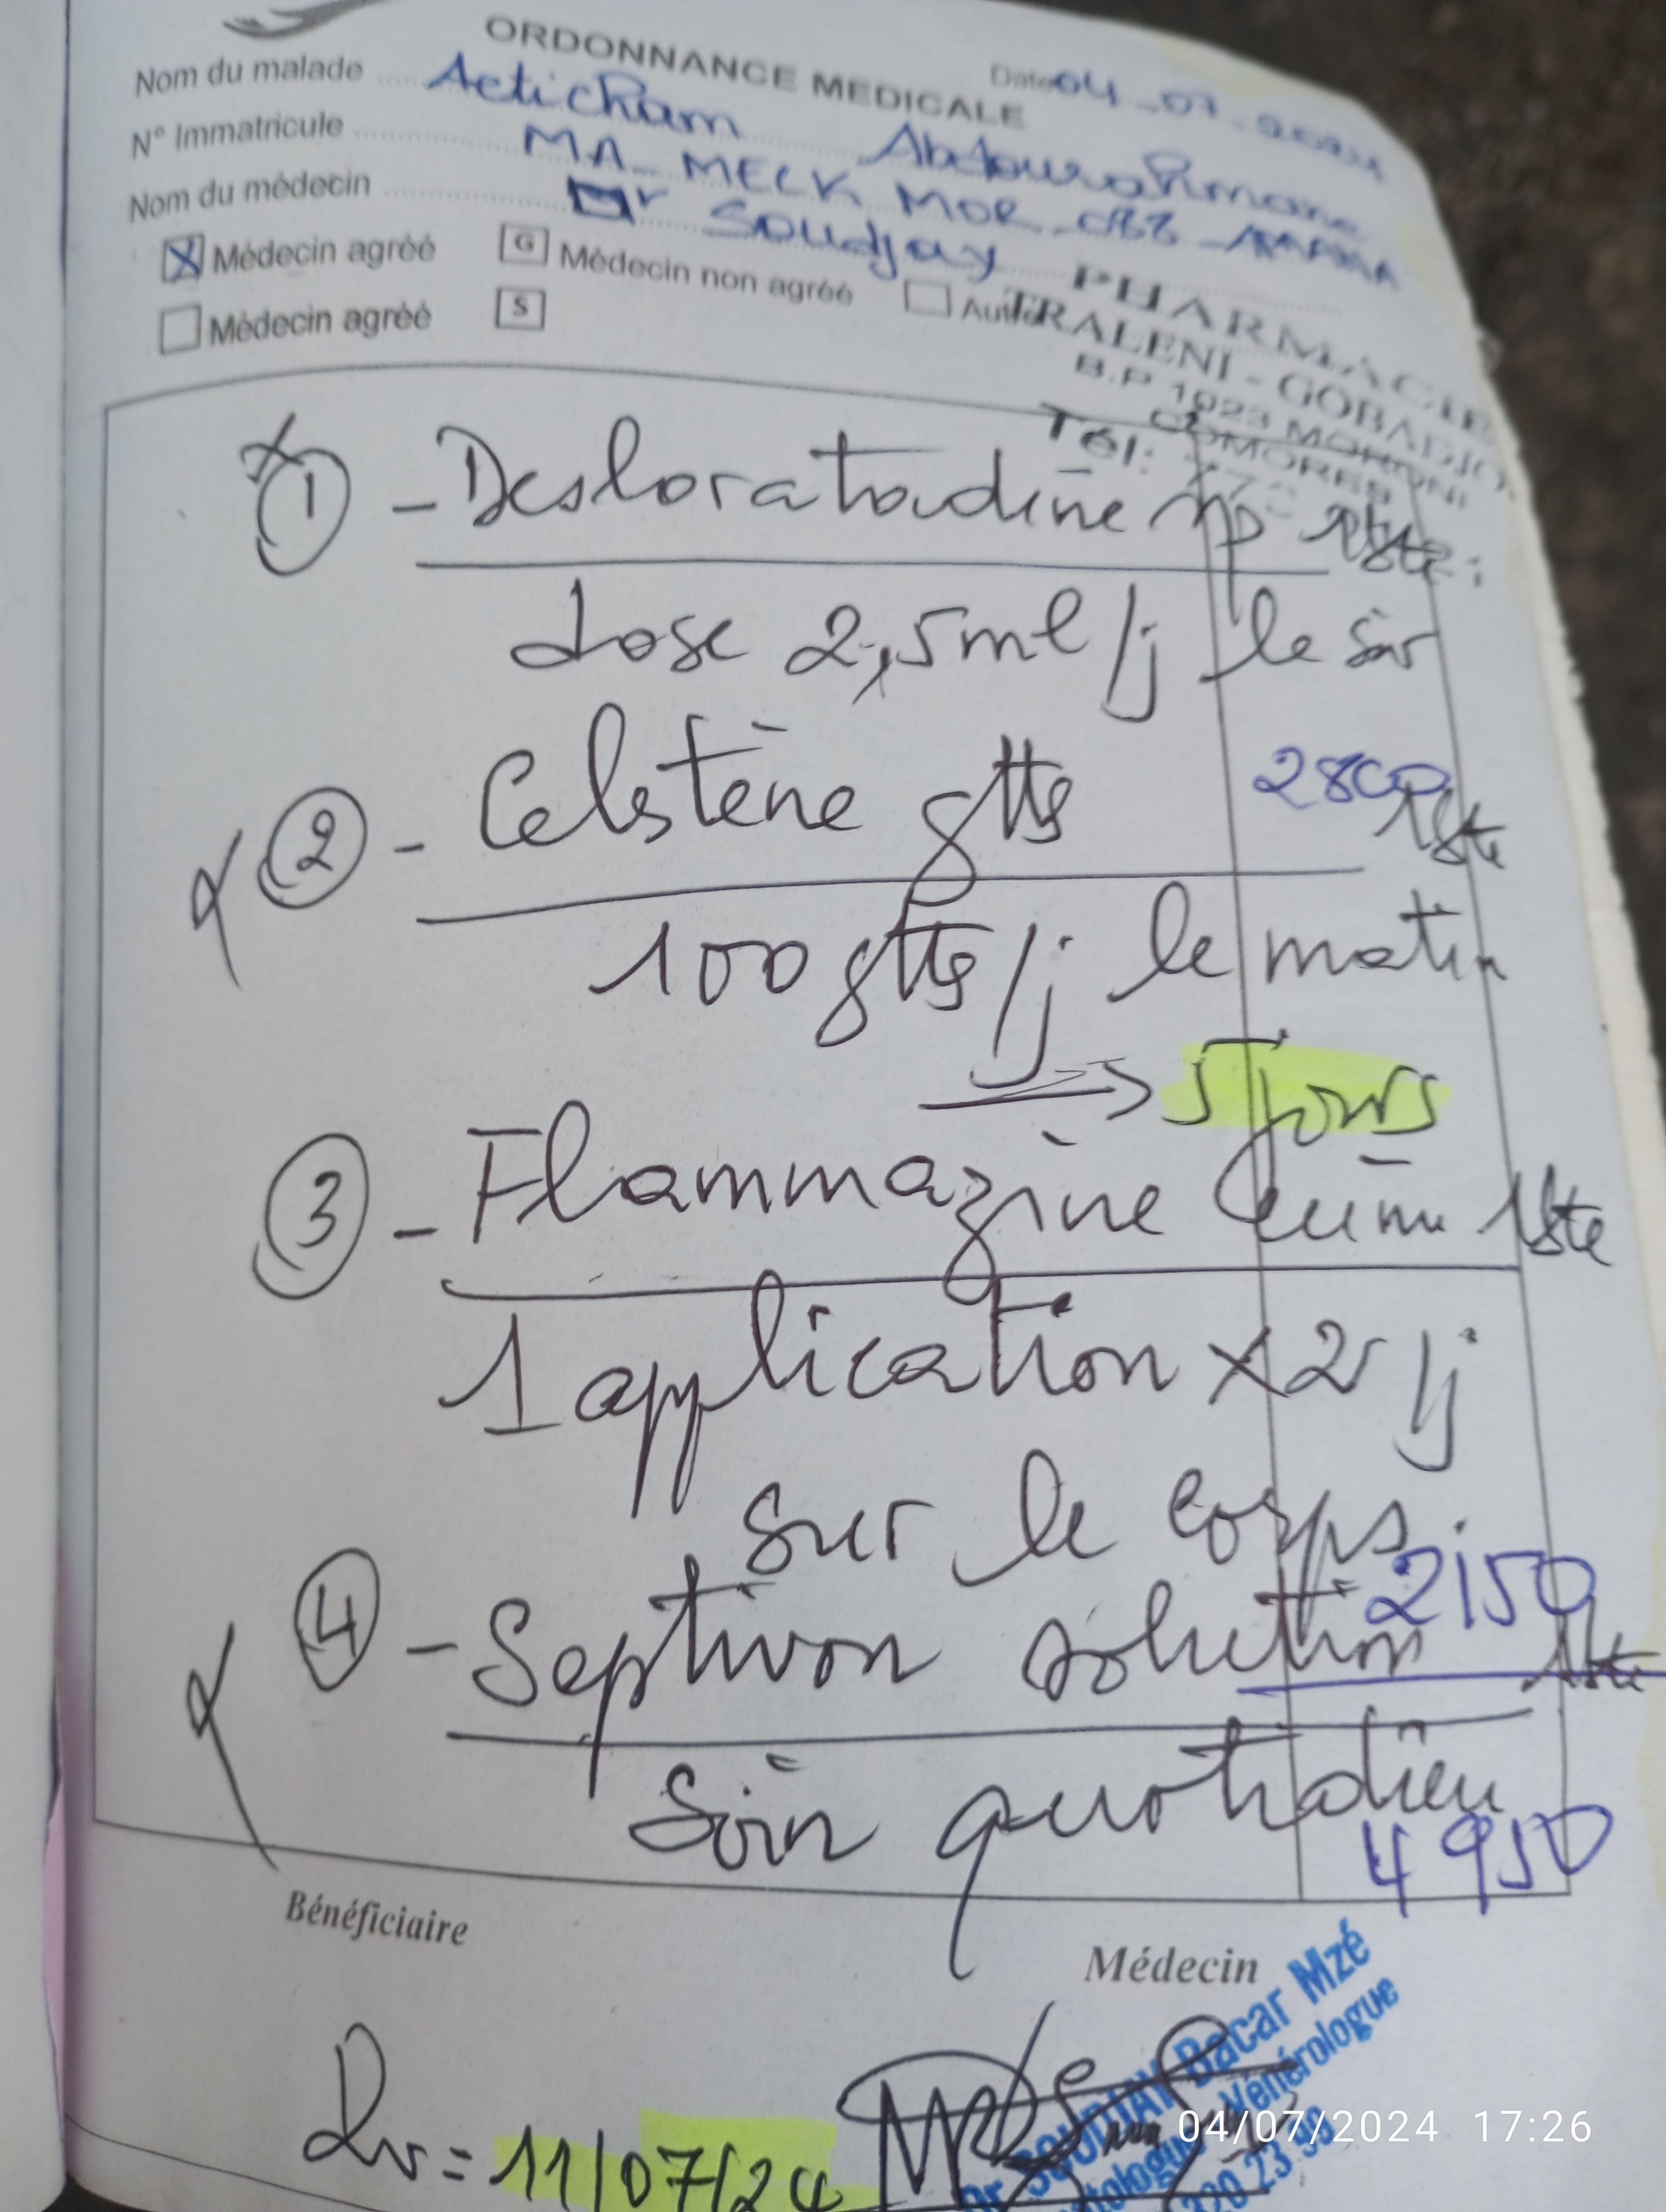 ORDONNANCE MEDICALE
Date 04-07-2024
Nom du malade Acticham Abdourahmane
N° Immatricule MA-MECK MOR
Nom du médecin Dr Soudjay
Médecin agréé G Médecin non agréé
Médecin agréé S
PHARMACIE
TRALENI - GOBADJO
B.P 1023 MORONI
COMORES
Tél:
1 - Desloratadine
dose 2,5ml/j le soir
2 - Celstène gtts
2800
100 gtts/j le matin
→ 5 jours
3 - Flammazine
1 application x 2/j
sur le corps
2150
4 - Septivon solution
Soin quotidien
4950
Bénéficiaire
Médecin
Dr SOUDJAY Bacar Mzé
Vénérologue
320 23 39
Rv = 11/07/24
04/07/2024 17:26